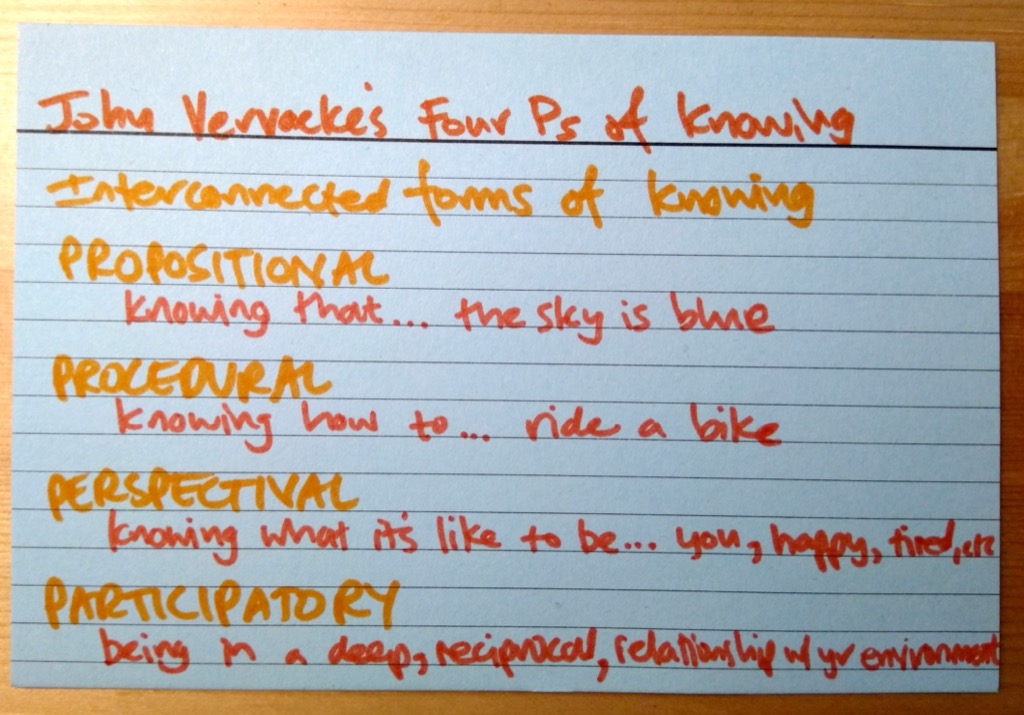 John Vervaeke's Four Ps of Knowing
Interconnected forms of knowing
PROPOSITIONAL
knowing that... the sky is blue
PROCEDURAL
knowing how to... ride a bike
PERSPECTIVAL
knowing what it's like to be... you, happy, tired, etc
PARTICIPATORY
being in a deep, reciprocal, relationship w/ yr environment